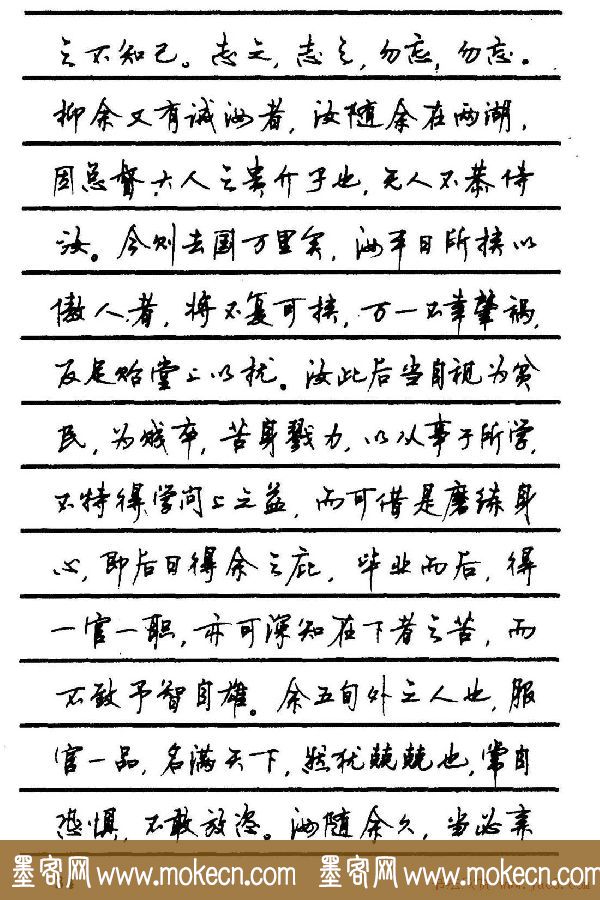 之不知己。志之，志之，勿忘，勿忘。
抑余又有诫汝者，汝随余在两湖，
因总督大人之贵介子也，无人不恭待
汝。今则去国万里矣，汝平日所挟以
傲人者，将不复可挟，万一不幸肇祸，
反足贻堂上以忧。汝此后当自视为贫
民，为贱卒，苦身戮力，以从事于所学，
不特得学问上之益，而可借是磨练身
心，即后日得余之庇，毕业而后，得
一官一职，亦可深知在下者之苦，而
不致予智自雄。余五旬外之人也，服
官一品，名满天下，然犹兢兢也，常自
恐惧，不敢放恣。汝随余久，当必亲
墨客网 www.mokecn.com 墨客网 www.mokecn.com